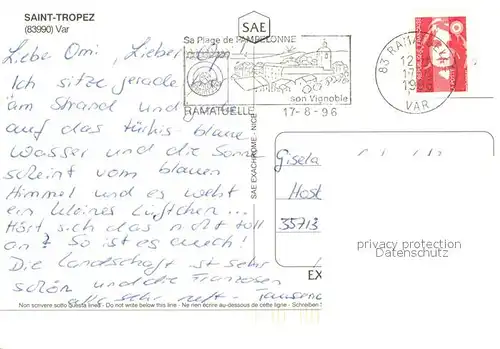 SAINT-TROPEZ
(83990) Var
SAE
Sa Plage de PAMPELONNE
RAMATUELLE
son Vignoble
17-6-96
83 RAMATUELLE
VAR
Liebe Omi, Lieber
Ich sitze gerade
am Strand und
auf das türkis-blaue
Wasser und die Sonne
scheint vom blauen
Himmel und es weht
ein kleines Lüftchen...
Hört sich das nicht toll
an? So ist es auch!
Die Landschaft ist sehr
schön und die Franzosen
alle sehr nett -
SAE EXACHROME - NICE
Gisela
35713
privacy protection
Datenschutz
EX
Non scrivere sotto questa linea - Do not write below this line - Ne rien écrire au-dessous de cette ligne - Schreiben Sie